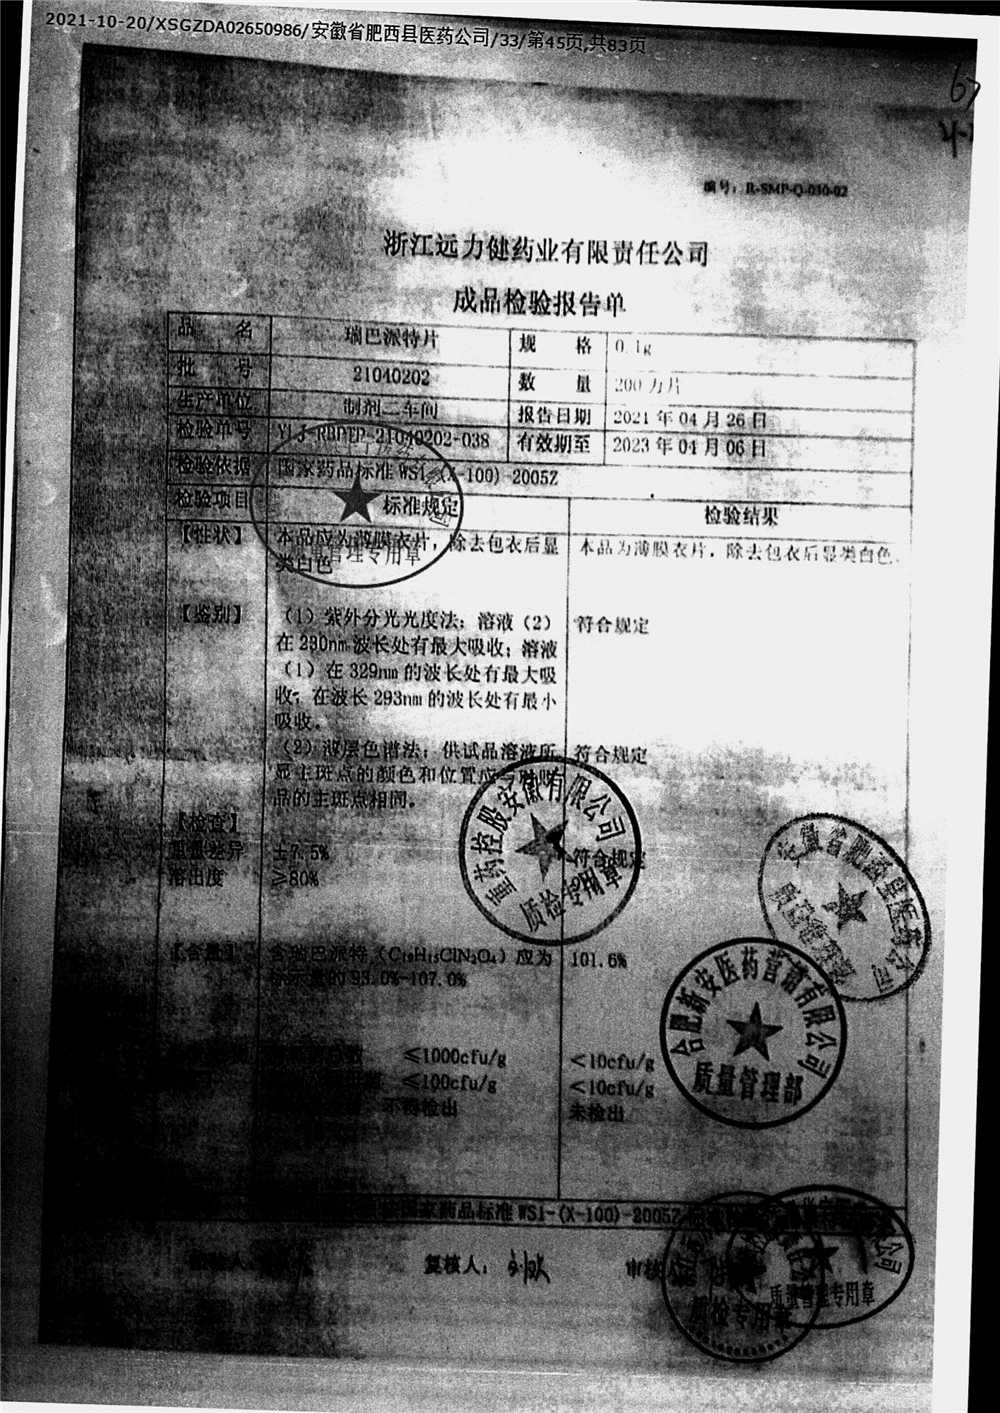 2021-10-20/XSGZDA02650986/安徽省肥西县医药公司/33/第45页,共83页
编号：R-SMP-Q-030-02
浙江远力健药业有限责任公司
成品检验报告单
品 名 瑞巴派特片 规 格 0.1g
批 号 21040202 数 量 200万片
生产单位 制剂二车间 报告日期 2021年04月26日
检验单号 YLJ-RBPTP-21040202-038 有效期至 2023年04月06日
检验依据 国家药品标准WS1-(X-100)-2005Z
检验项目 标准规定 检验结果
【性状】 本品应为薄膜衣片，除去包衣后显 本品为薄膜衣片，除去包衣后显类白色.
类白色
【鉴别】 （1）紫外分光光度法：溶液（2） 符合规定
在230nm波长处有最大吸收；溶液
（1）在329nm的波长处有最大吸
收；在波长293nm的波长处有最小
吸收。
（2）薄层色谱法：供试品溶液所 符合规定
显主斑点的颜色和位置应与对照
品的主斑点相同。
【检查】
重量差异 ±7.5% 符合规定
溶出度 ≥80%
【含量】 含瑞巴派特（C₁₉H₁₅ClN₂O₄）应为 101.6%
标示量的93.0%-107.0%
≤1000cfu/g <10cfu/g
≤100cfu/g <10cfu/g
不得检出 未检出
国家药品标准WS1-(X-100)-2005Z
复核人：
审核
质量管理专用章
重药控股安徽有限公司
质检专用章
安徽省肥西县医药公司
合肥新安医药营销有限公司
质量管理部
质检专用章
质量管理专用章